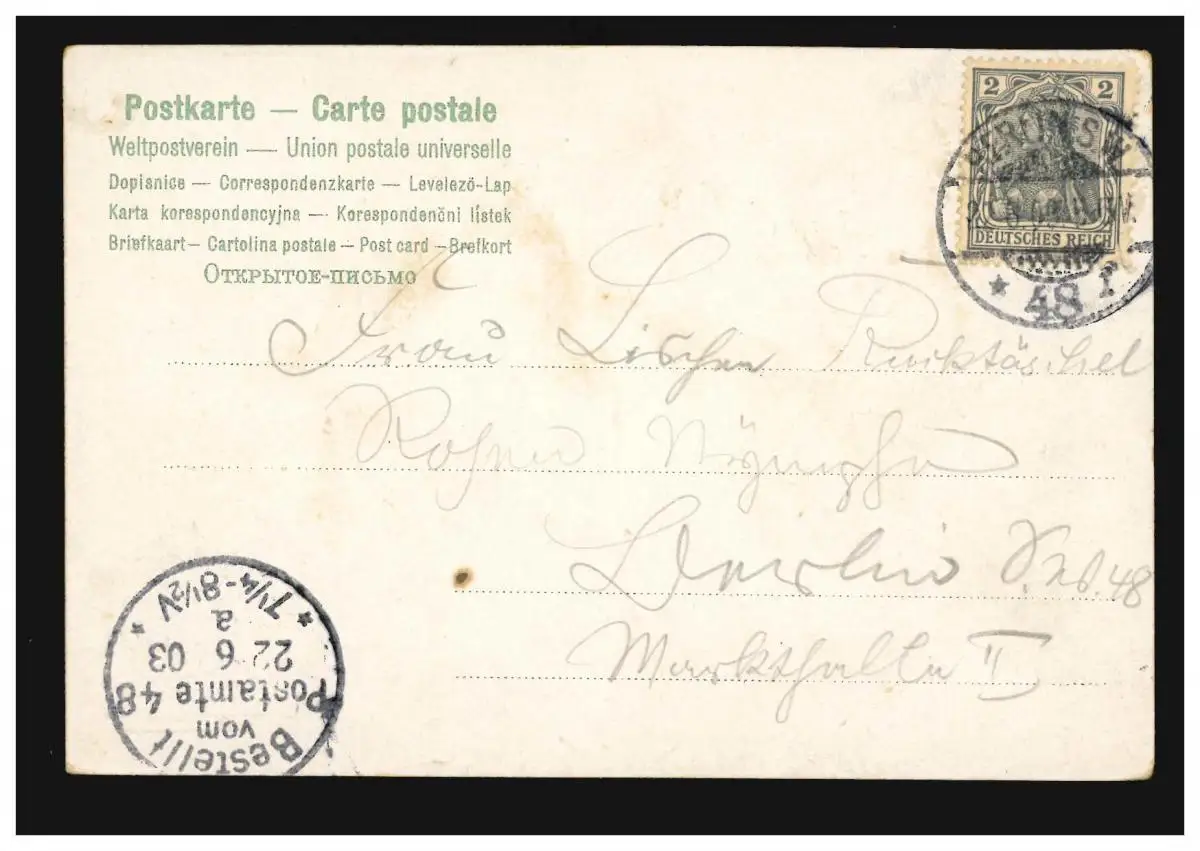 Postkarte — Carte postale
Weltpostverein — Union postale universelle
Dopisnice — Correspondenzkarte — Levelező-Lap
Karta korespondencyjna — Korespondenčni lístek
Briefkaart — Cartolina postale — Post card — Brefkort
Открытое-письмо
2 2
DEUTSCHES REICH
BERLIN S.W.
* 48 f
Frau Lischen
Rosen Nÿmphe
Berlin S.W. 48
Markthalle II
Bestellt
vom
Postamte 48
22 6 03
a
* 7¼-8½V *